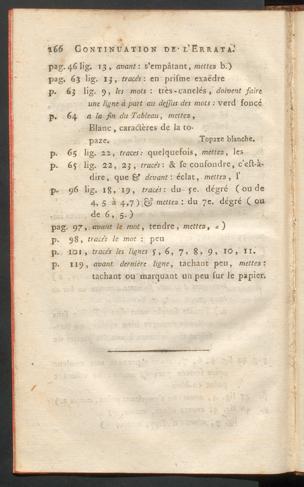 266 CONTINUATION DE L'ERRATA.
pag. 46 lig. 13, avant: s'empâtant, mettez b.)
pag. 63 lig. 13, tracés: en prisme exaédre
p. 63 lig. 9, les mots: très-canelés, doivent faire
une ligne à part au dessus des mots: verd foncé
p. 64 a la fin du Tableau, mettez,
Blanc, caractères de la to-
paze. Topaze blanche.
p. 65 lig. 22, tracez: quelquefois, mettez, les
p. 65 lig. 22, 23, tracés: & se confondre, c'est-à-
dire, que & devant: éclat, mettez, l'
p. 96 lig. 18, 19, tracés: du 5e. dégré (ou de
4, 5 à 4,7) & mettez: du 7e. dégré (ou
de 6, 5.)
pag. 97, avant le mot, tendre, mettez, a)
p. 98, tracés le mot: peu
p. 101, tracés les lignes 5, 6, 7, 8, 9, 10, 11.
p. 119, avant derniére ligne, tachant peu, mettez:
tachant ou marquant un peu sur le papier.